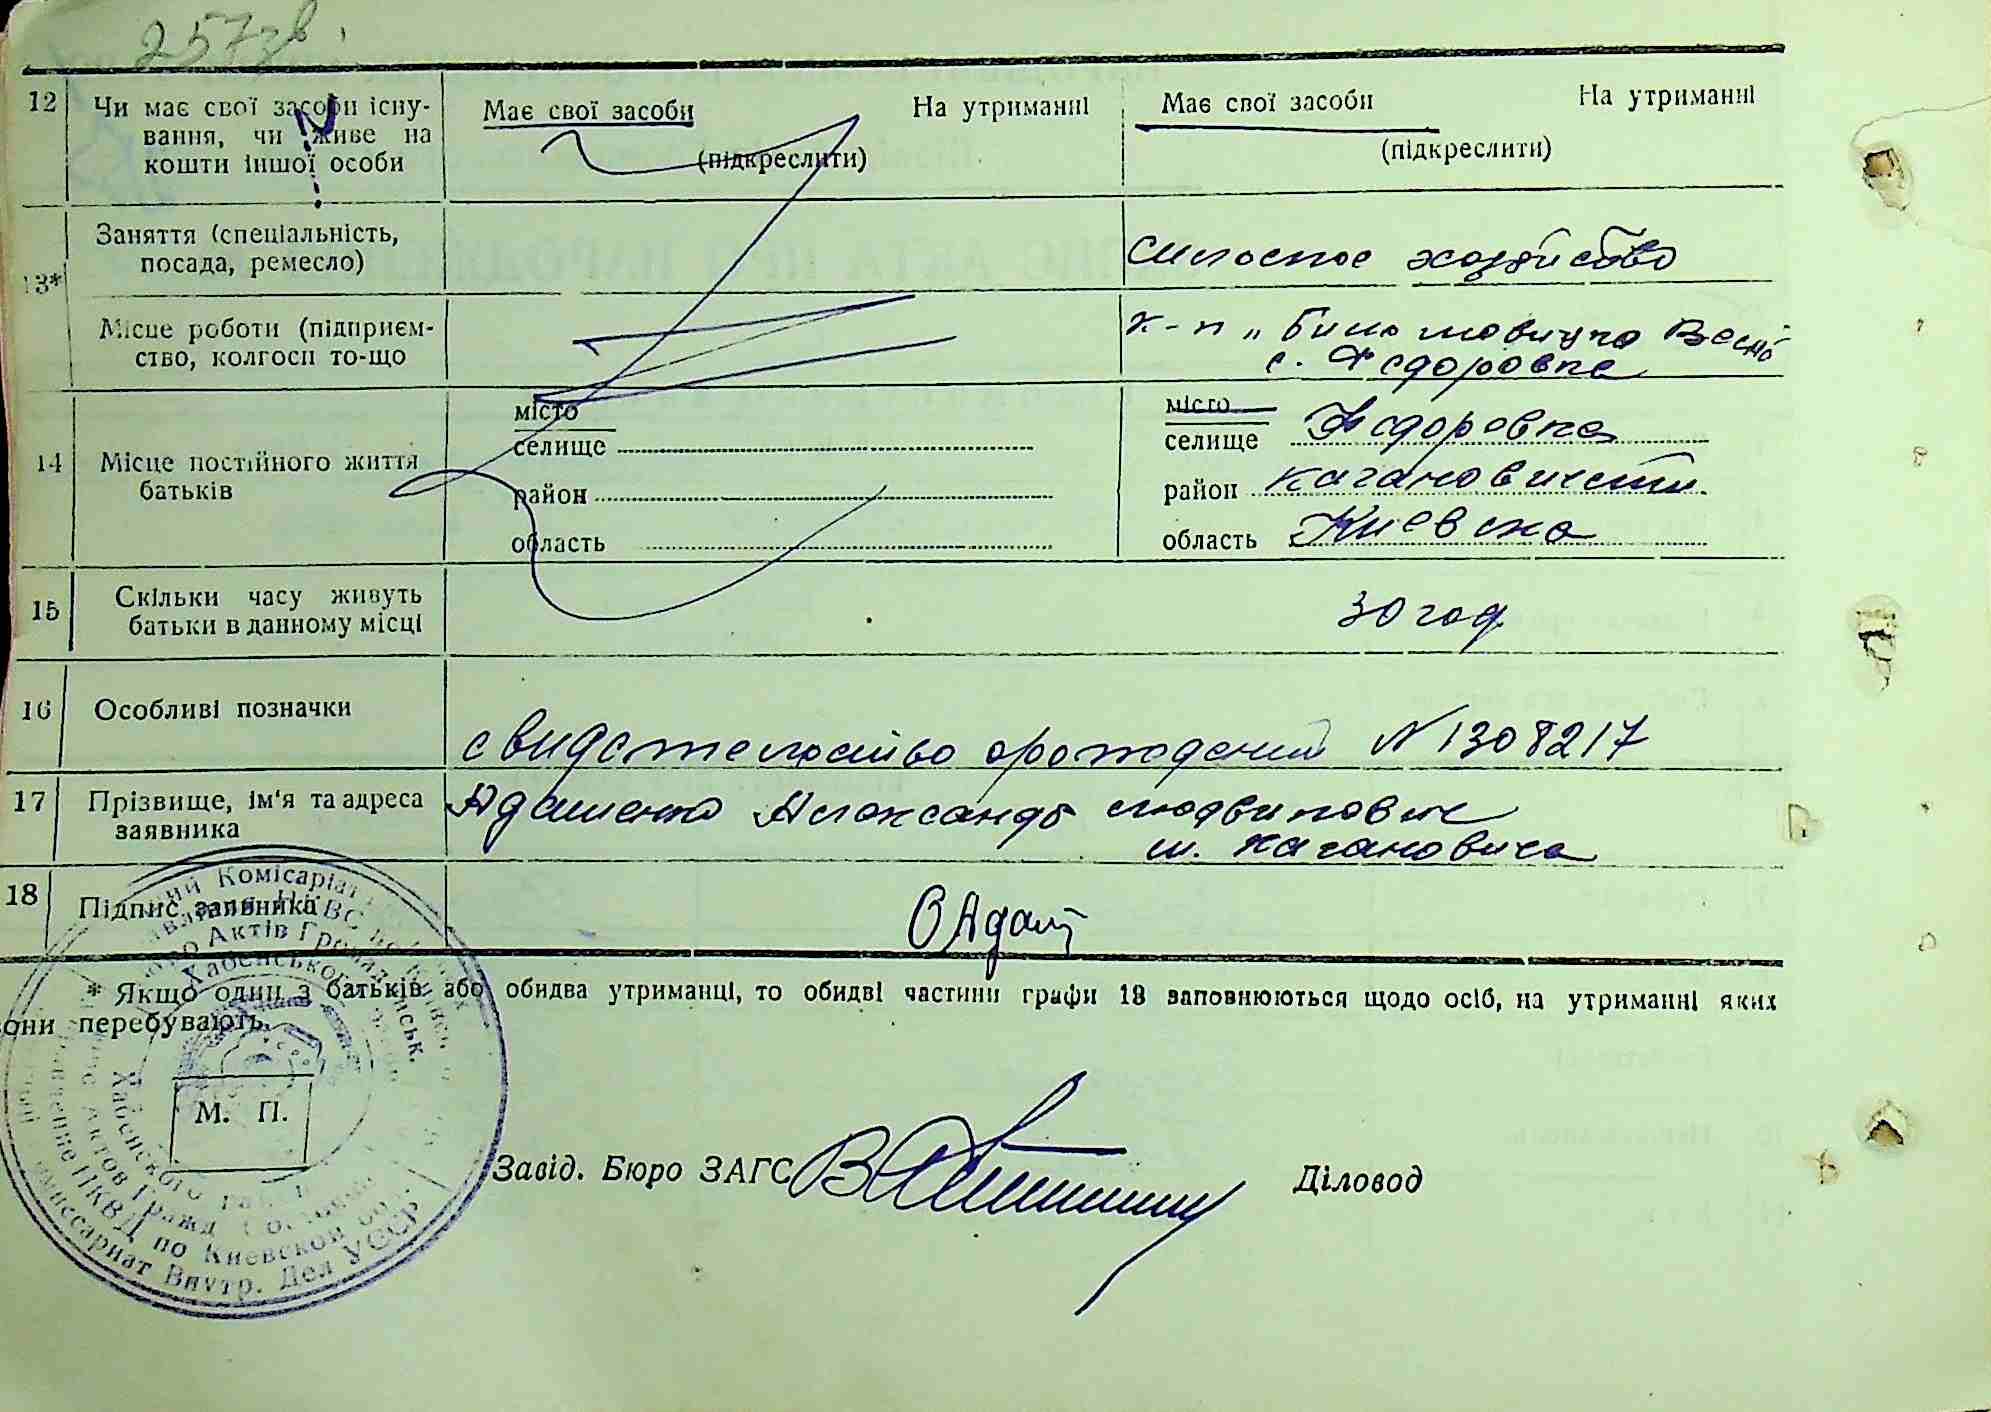 257зв.
12 Чи має свої засоби існу-
вання, чи живе на
кошти іншої особи
Має свої засоби На утриманні
(підкреслити)
Має свої засоби На утриманні
(підкреслити)
13*
Заняття (спеціальність,
посада, ремесло)
хозяйство
Місце роботи (підприєм-
ство, колгосп то-що
к-п „
с. Федоровка
14 Місце постійного життя
батьків
місто
селище
район
область
місто
селище Федоровка
район Кагановичский
область Киевска
15 Скільки часу живуть
батьки в данному місці
30 год
16 Особливі позначки
свидетельство о рождений N 1308217
17 Прізвище, ім'я та адреса
заявника
Адаменко Александр Людвикович
м. Кагановича
18 Підпис заявника
ОАдам
* Якщо один з батьків або обидва утриманці, то обидві частини графи 13 заповнюються щодо осіб, на утриманні яких
вони перебувають.
М. П.
Завід. Бюро ЗАГС
Діловод
Комісаріат
НКВС по Київськ.
Бюро Актів Громад.
Хабенського
Хабенского
Актов Гражд. Состояния
Управление НКВД по Киевской обл.
Комиссариат Внутр. Дел УССР